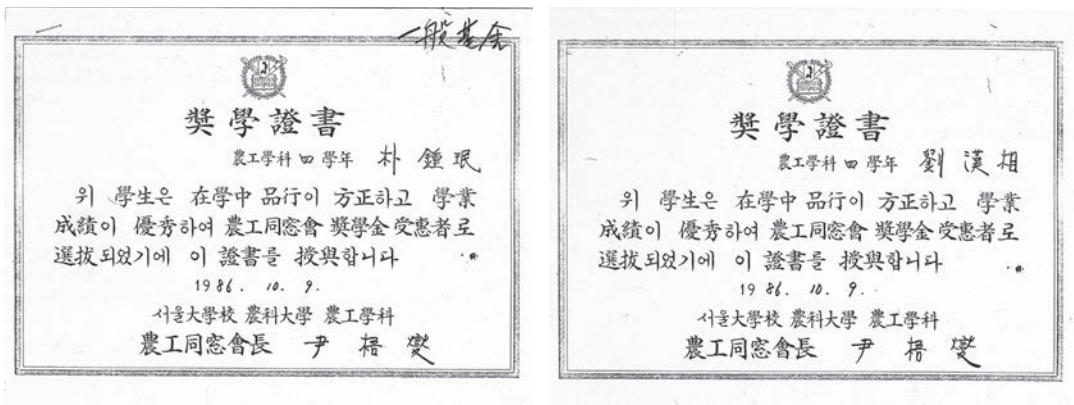 一般基金
奬學證書
農工學科 四 學年 朴 鍾 珉
위 學生은 在學中 品行이 方正하고 學業
成績이 優秀하여 農工同窓會 奬學金 受惠者로
選拔되었기에 이 證書를 授與합니다
1986. 10. 9.
서울大學校 農科大學 農工學科
農工同窓會長 尹 梧 燮
奬學證書
農工學科 四 學年 劉 漢 相
위 學生은 在學中 品行이 方正하고 學業
成績이 優秀하여 農工同窓會 奬學金 受惠者로
選拔되었기에 이 證書를 授與합니다
1986. 10. 9.
서울大學校 農科大學 農工學科
農工同窓會長 尹 梧 燮